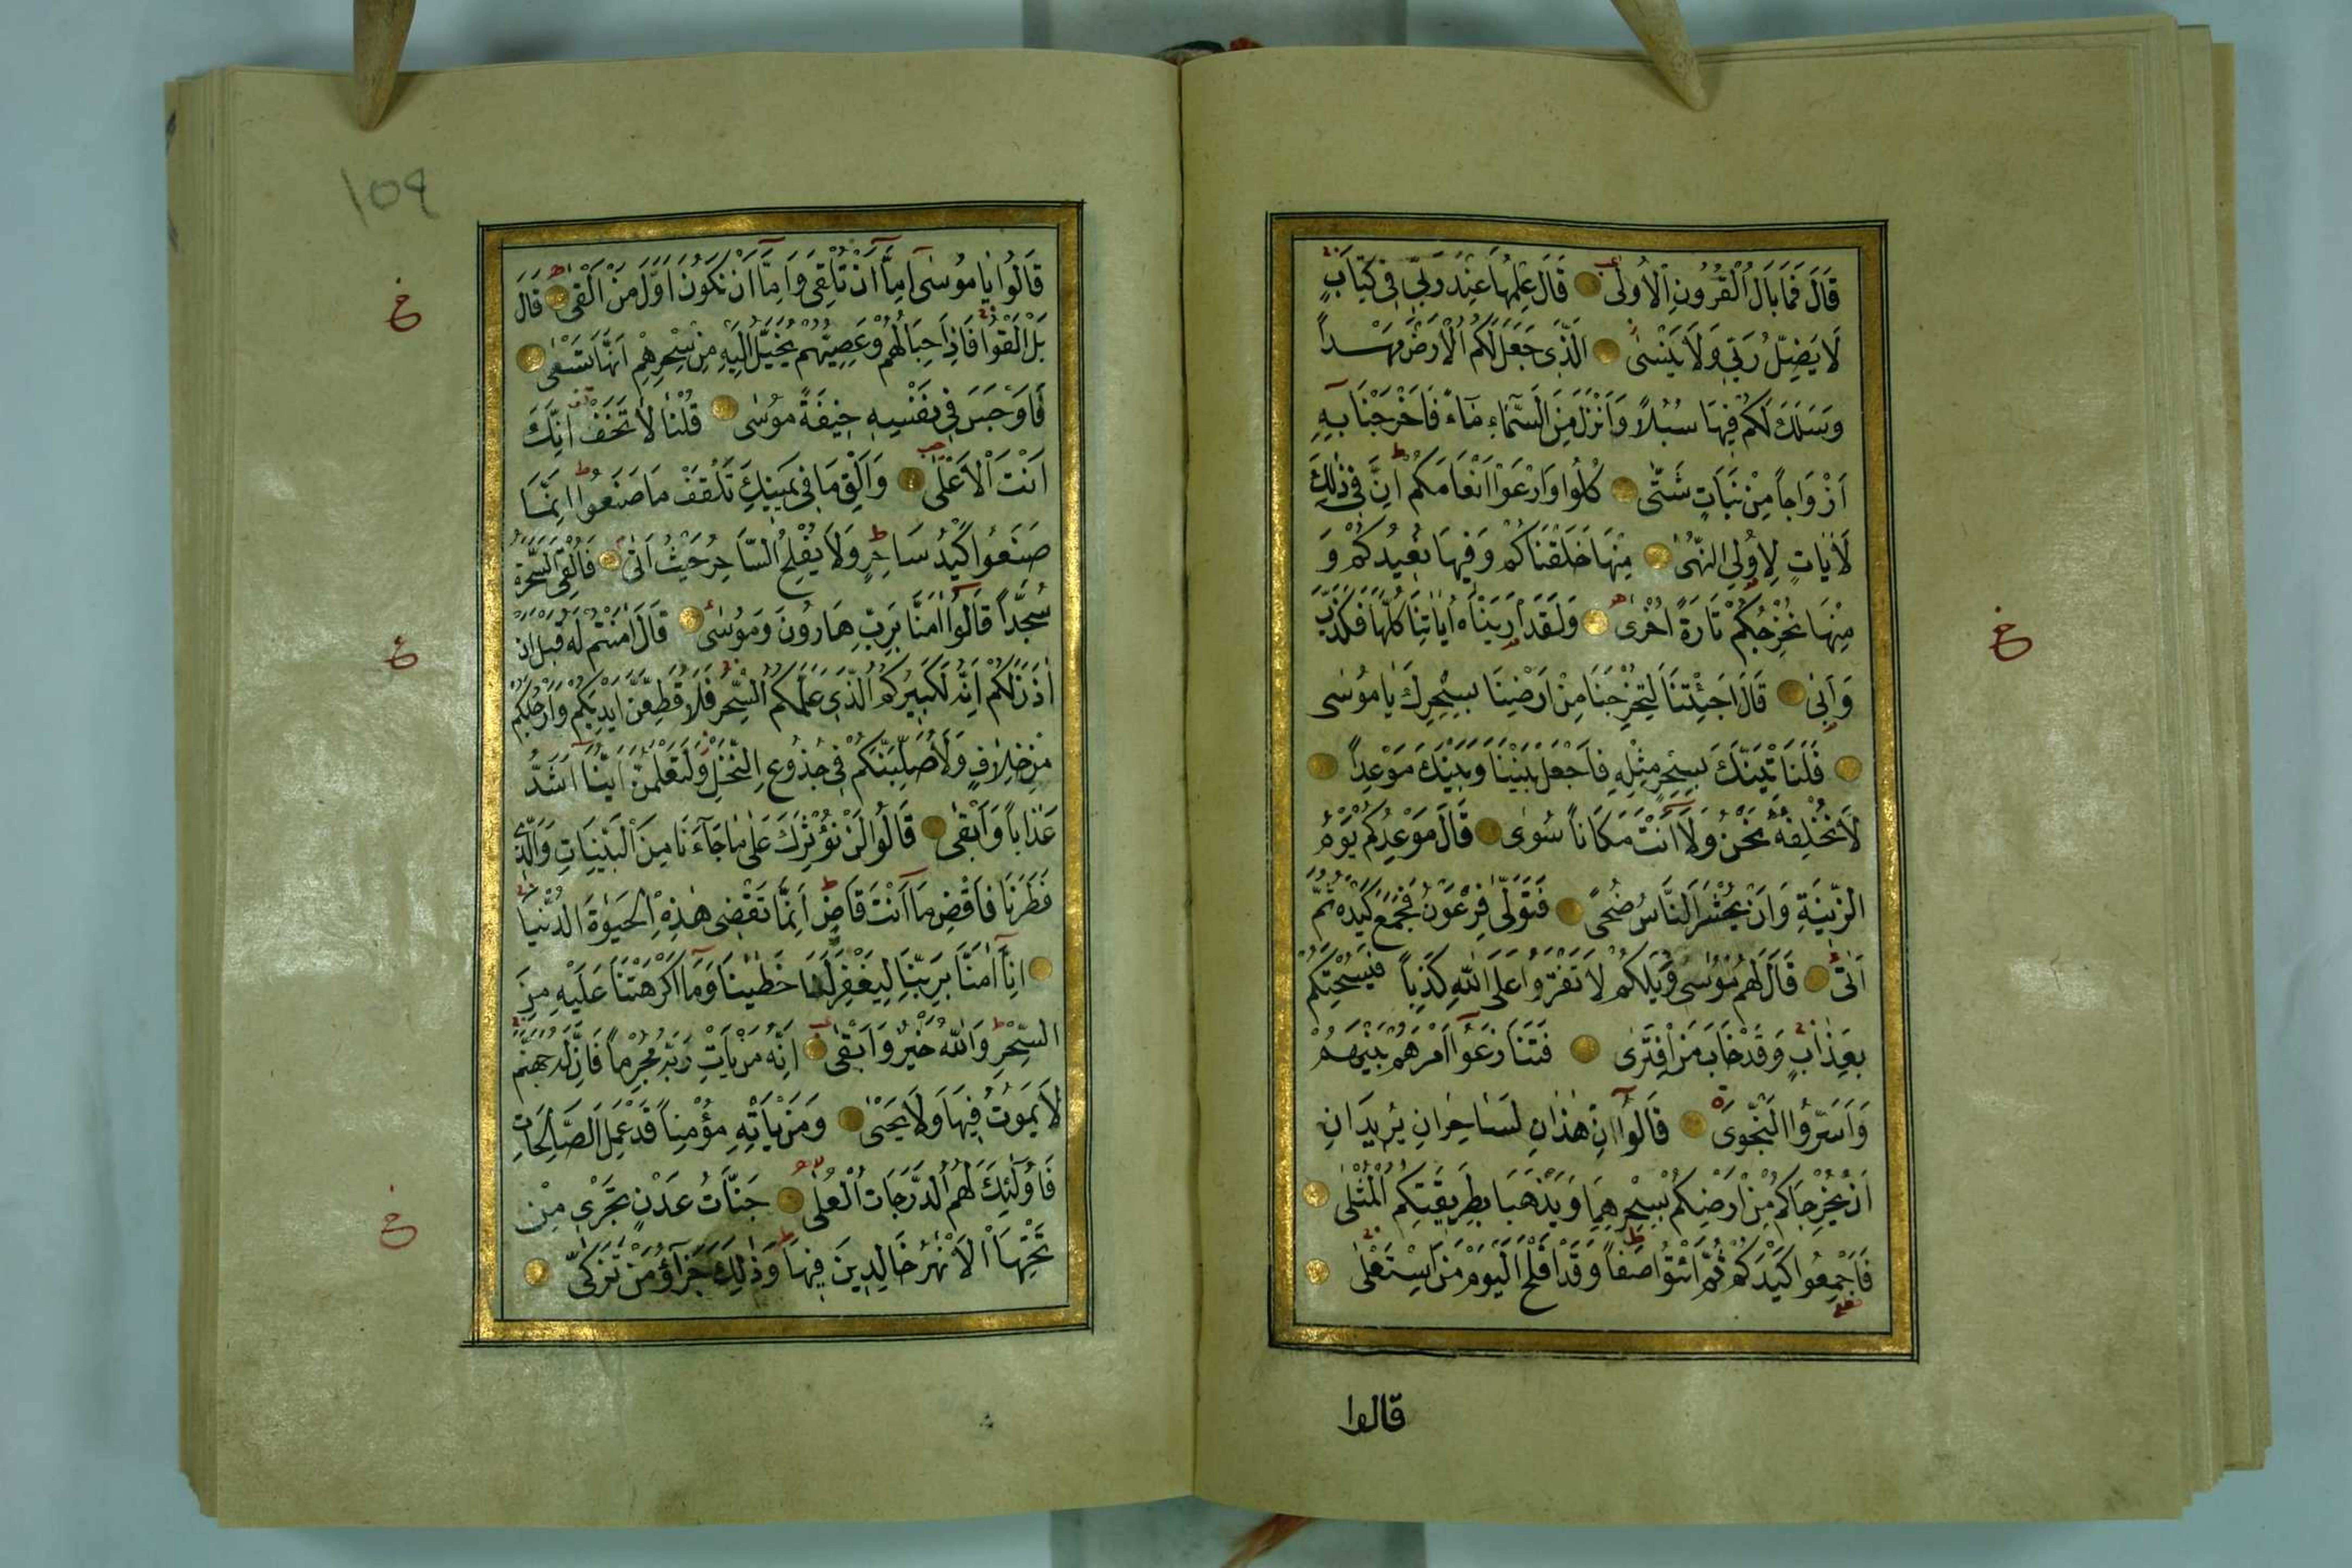 قَالَ فَمَا بَالُ الْقُرُونِ الْاُولٰى قَالَ عِلْمُهَا عِنْدَ رَبّ۪ى ف۪ى كِتَابٍ
لَا يَضِلُّ رَبّ۪ى وَلَا يَنْسٰى اَلَّذ۪ى جَعَلَ لَكُمُ الْاَرْضَ مَهْدًا
وَسَلَكَ لَكُمْ ف۪يهَا سُبُلًا وَاَنْزَلَ مِنَ السَّمَٓاءِ مَٓاءً فَاَخْرَجْنَا بِه۪ٓ
اَزْوَاجًا مِنْ نَبَاتٍ شَتّٰى كُلُوا وَارْعَوْا اَنْعَامَكُمْ اِنَّ ف۪ى ذٰلِكَ
لَاٰيَاتٍ لِاُو۬لِى النُّهٰى مِنْهَا خَلَقْنَاكُمْ وَف۪يهَا نُع۪يدُكُمْ وَ
مِنْهَا نُخْرِجُكُمْ تَارَةً اُخْرٰى وَلَقَدْ اَرَيْنَاهُ اٰيَاتِنَا كُلَّهَا فَكَذَّبَ
وَاَبٰى قَالَ اَجِئْتَنَا لِتُخْرِجَنَا مِنْ اَرْضِنَا بِسِحْرِكَ يَا مُوسٰى
فَلَنَاْتِيَنَّكَ بِسِحْرٍ مِثْلِه۪ فَاجْعَلْ بَيْنَنَا وَبَيْنَكَ مَوْعِدًا
لَا نُخْلِفُهُ نَحْنُ وَلَٓا اَنْتَ مَكَانًا سُوًى قَالَ مَوْعِدُكُمْ يَوْمُ
الزّ۪ينَةِ وَاَنْ يُحْشَرَ النَّاسُ ضُحًى فَتَوَلّٰى فِرْعَوْنُ فَجَمَعَ كَيْدَهُ ثُمَّ
اَتٰى قَالَ لَهُمْ مُوسٰى وَيْلَكُمْ لَا تَفْتَرُوا عَلَى اللّٰهِ كَذِبًا فَيُسْحِتَكُمْ
بِعَذَابٍ وَقَدْ خَابَ مَنِ افْتَرٰى فَتَنَازَعُٓوا اَمْرَهُمْ بَيْنَهُمْ
وَاَسَرُّوا النَّجْوٰى قَالُٓوا اِنْ هٰذَانِ لَسَاحِرَانِ يُر۪يدَانِ
اَنْ يُخْرِجَاكُمْ مِنْ اَرْضِكُمْ بِسِحْرِهِمَا وَيَذْهَبَا بِطَر۪يقَتِكُمُ الْمُثْلٰى
فَاَجْمِعُوا كَيْدَكُمْ ثُمَّ ائْتُوا صَفًّا وَقَدْ اَفْلَحَ الْيَوْمَ مَنِ اسْتَعْلٰى
قالوا
١٥٩
قَالُوا يَا مُوسٰٓى اِمَّٓا اَنْ تُلْقِىَ وَاِمَّٓا اَنْ نَكُونَ اَوَّلَ مَنْ اَلْقٰى قَالَ
بَلْ اَلْقُوا فَاِذَا حِبَالُهُمْ وَعِصِيُّهُمْ يُخَيَّلُ اِلَيْهِ مِنْ سِحْرِهِمْ اَنَّهَا تَسْعٰى
فَاَوْجَسَ ف۪ى نَفْسِه۪ خ۪يفَةً مُوسٰى قُلْنَا لَا تَخَفْ اِنَّكَ
اَنْتَ الْاَعْلٰى وَاَلْقِ مَا ف۪ى يَم۪ينِكَ تَلْقَفْ مَا صَنَعُوا اِنَّمَا
صَنَعُوا كَيْدُ سَاحِرٍ وَلَا يُفْلِحُ السَّاحِرُ حَيْثُ اَتٰى فَاُلْقِىَ السَّحَرَةُ
سُجَّدًا قَالُٓوا اٰمَنَّا بِرَبِّ هَارُونَ وَمُوسٰى قَالَ اٰمَنْتُمْ لَهُ قَبْلَ اَنْ
اٰذَنَ لَكُمْ اِنَّهُ لَكَب۪يرُكُمُ الَّذ۪ى عَلَّمَكُمُ السِّحْرَ فَلَاُقَطِّعَنَّ اَيْدِيَكُمْ وَاَرْجُلَكُمْ
مِنْ خِلَافٍ وَلَاُصَلِّبَنَّكُمْ ف۪ى جُذُوعِ النَّخْلِ وَلَتَعْلَمُنَّ اَيُّنَٓا اَشَدُّ
عَذَابًا وَاَبْقٰى قَالُوا لَنْ نُؤْثِرَكَ عَلٰى مَا جَٓاءَنَا مِنَ الْبَيِّنَاتِ وَالَّذ۪ى
فَطَرَنَا فَاقْضِ مَٓا اَنْتَ قَاضٍ اِنَّمَا تَقْض۪ى هٰذِهِ الْحَيٰوةَ الدُّنْيَا
اِنَّٓا اٰمَنَّا بِرَبِّنَا لِيَغْفِرَ لَنَا خَطَايٰنَا وَمَٓا اَكْرَهْتَنَا عَلَيْهِ مِنَ
السِّحْرِ وَاللّٰهُ خَيْرٌ وَاَبْقٰى اِنَّهُ مَنْ يَاْتِ رَبَّهُ مُجْرِمًا فَاِنَّ لَهُ جَهَنَّمَ
لَا يَمُوتُ ف۪يهَا وَلَا يَحْيٰى وَمَنْ يَاْتِه۪ مُؤْمِنًا قَدْ عَمِلَ الصَّالِحَاتِ
فَاُو۬لٰٓئِكَ لَهُمُ الدَّرَجَاتُ الْعُلٰى جَنَّاتُ عَدْنٍ تَجْر۪ى مِنْ
تَحْتِهَا الْاَنْهٰرُ خَالِد۪ينَ ف۪يهَا وَذٰلِكَ جَزَٓاؤُ مَنْ تَزَكّٰى